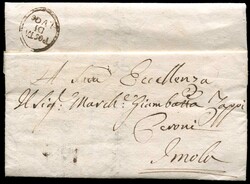 POSTA
DI
LUGO
A Sua Eccellenza
Il Sig.r March.e Giambatta Zappi
Ceroni
Imola